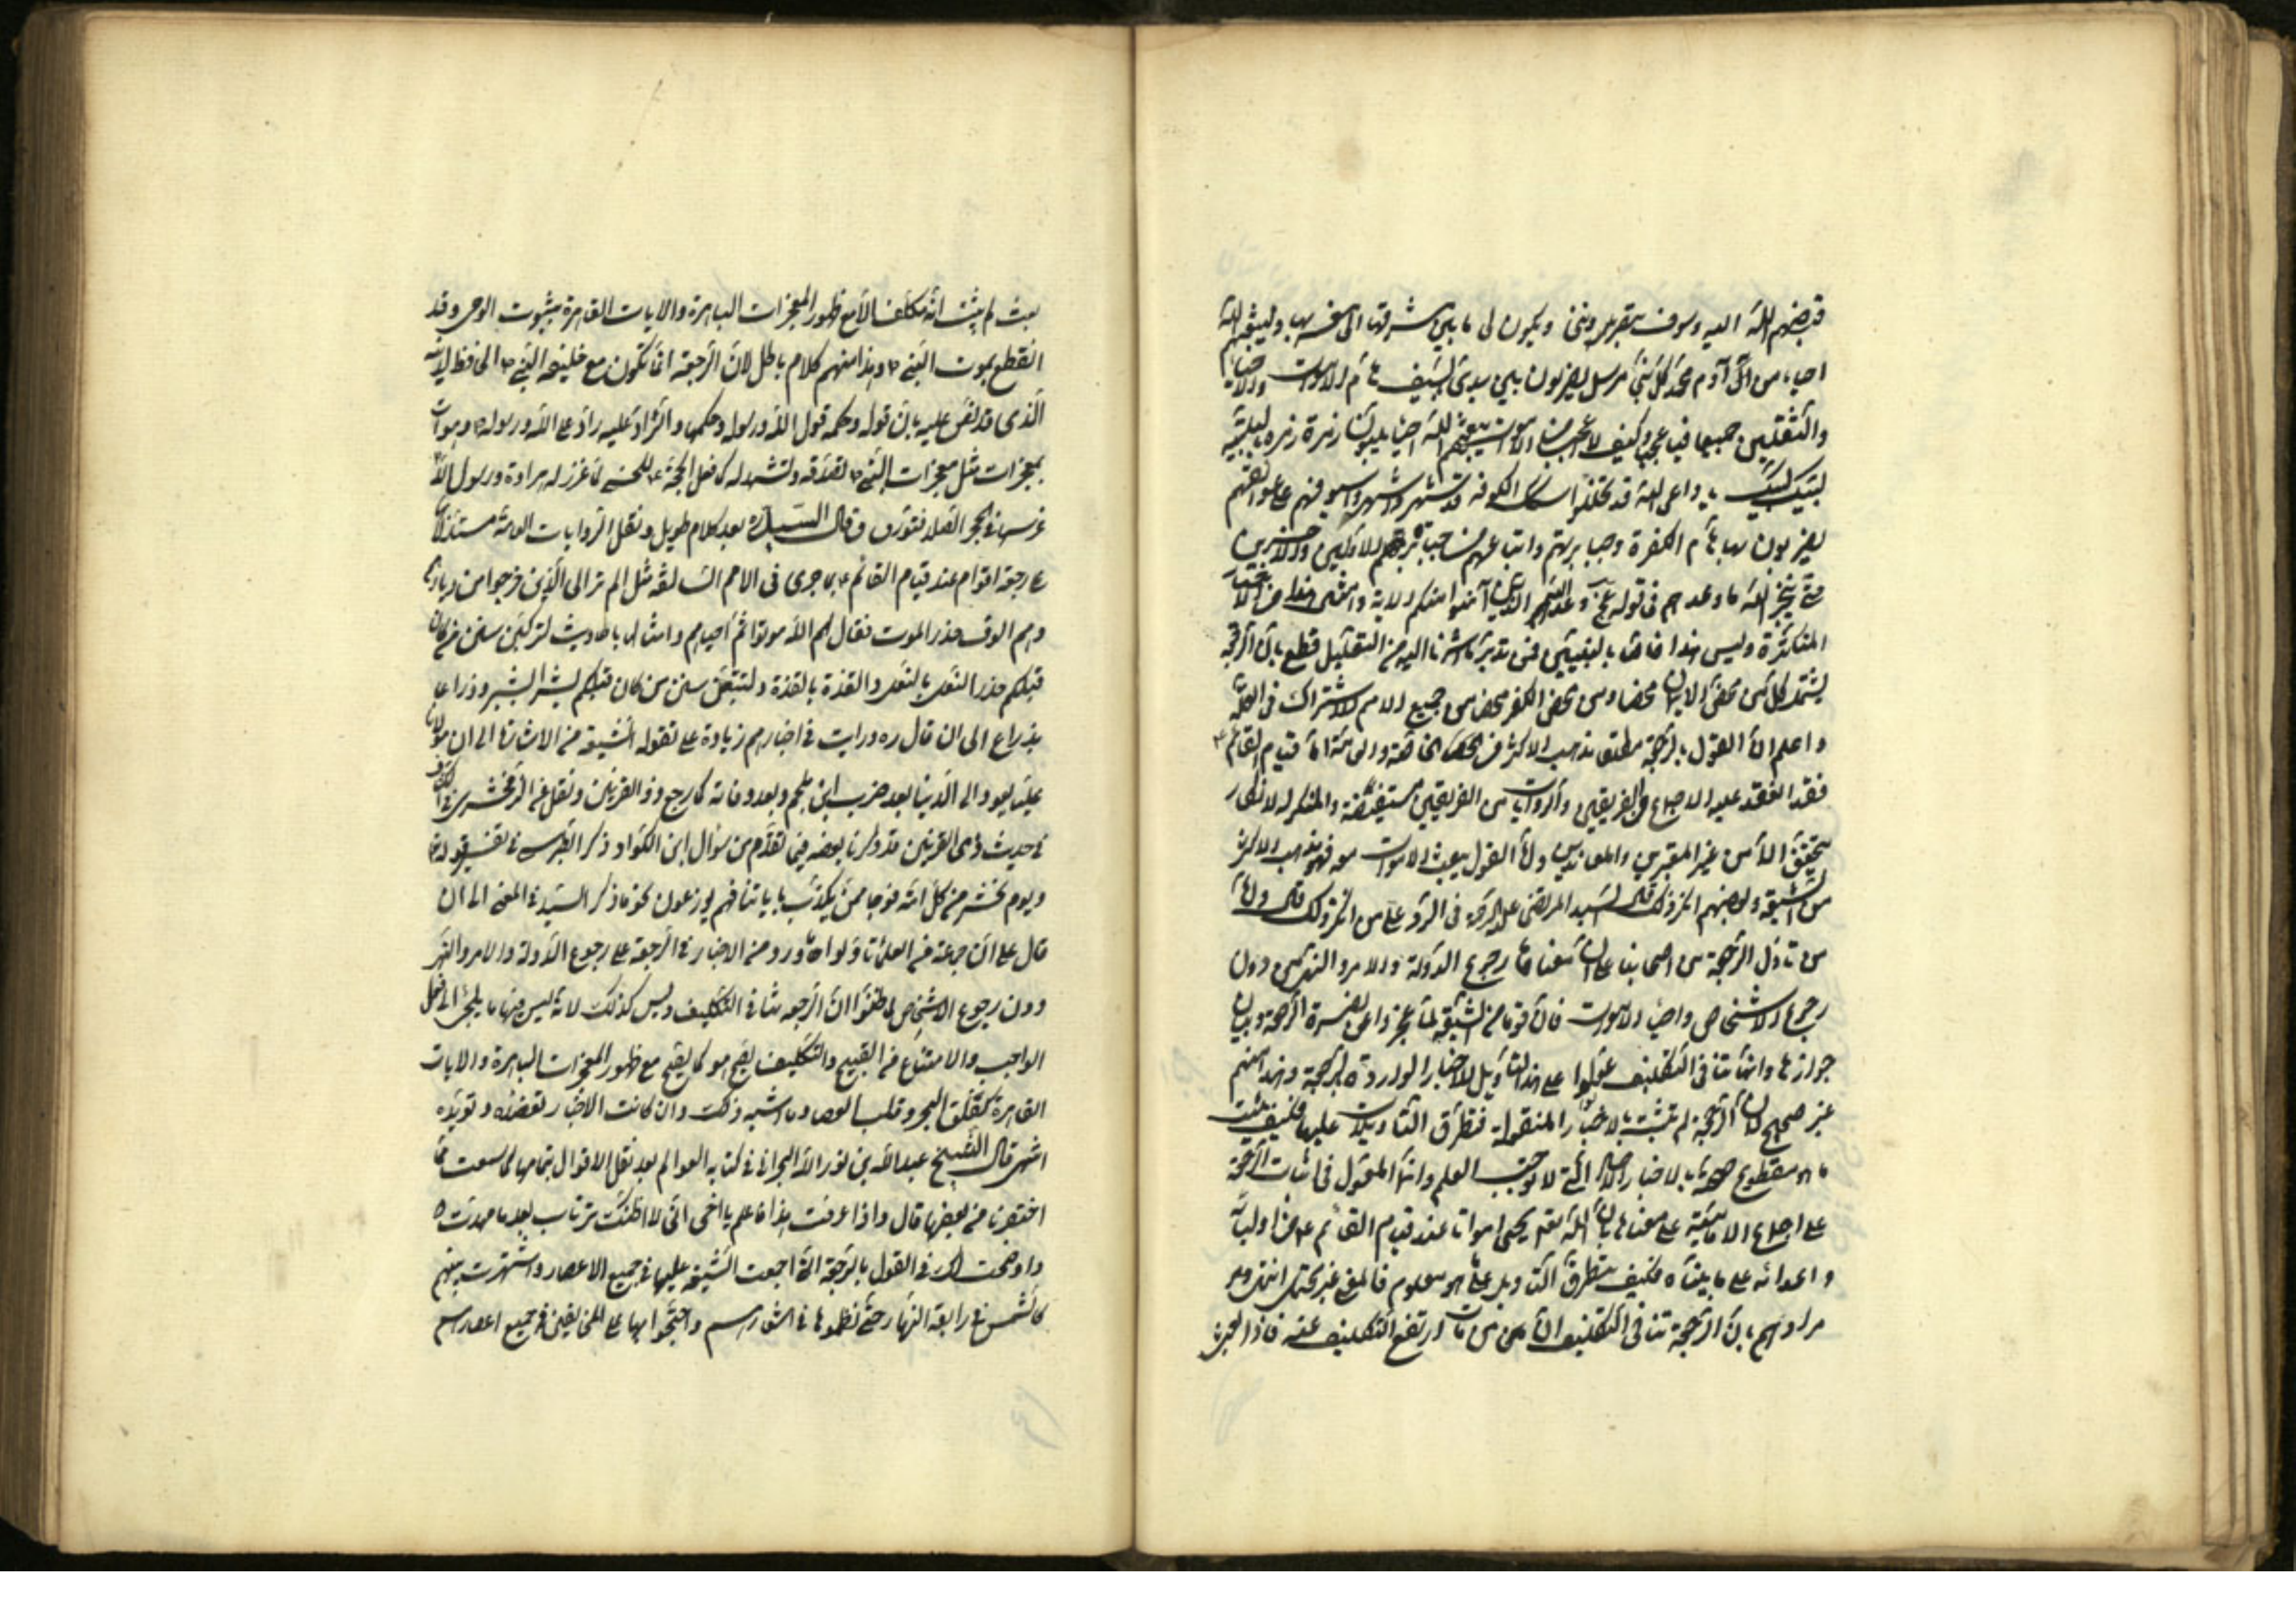 قبضهم الله اليه وسوف ينصرونني ويكون لي ما بين مشرقها الى مغربها وليبعثهم الله
احياء من آدم الى محمد كل نبي مرسل يضربون بين يدي بالسيف هام الاموات والاحياء
والثقلين جميعا فيا عجبا وكيف لا اعجب من اموات يبعثهم الله احياء يلبون زمرة زمرة بالتلبية
لبيك لبيك يا داعي الله قد تخللوا سكك الكوفة قد شهروا سيوفهم على عواتقهم
يضربون بها هام الكفرة وجبابرتهم واتباعهم من جبابرة الاولين والاخرين
حتى ينجز الله ما وعدهم في قوله عز وجل وعد الله الذين آمنوا منكم الاية وامثال هذا من الاخبار
المتكثرة وليس هذا خاصا بالنبيين فمن تدبر ما اشرنا اليه من التعليل قطع بان الرجعة
يشتمل كل من محض الايمان محضا ومن محض الكفر محضا من جميع الامم لاشتراك في العلة
واعلم ان القول بالرجعة مطلق مذهب الاكثر من الخاصة والعامة اما قيام القائم ع
فقد انعقد عليه الاجماع من الفريقين والروايات من الفريقين مستفيضة والمنكر لانكار
يتحقق الا من غير المعتبرين والمعاندين واما القول ببعث الاموات معه فهو مذهب الاكثر
من الشيعة وبعضهم انكر ذلك قال السيد المرتضى عليه الرحمة في الرد على من انكر ذلك قال واما
من تاول الرجعة من اصحابنا على ان معناها رجوع الدولة والامر والنهي من دون
رجوع الاشخاص واحياء الاموات فان قوما من الشيعة لما عجزوا عن نصرة الرجعة وبيان
جوازها وانها تنافي التكليف عولوا على هذا التاويل للاخبار الواردة بالرجعة وهذا منهم
غير صحيح لان الرجعة لم تثبت بالاخبار المنقولة فتطرق التاويلات عليها فكيف يثبت
ما هو مقطوع على صحته بالاخبار الاحاد التي لا توجب العلم وانما المعول في اثبات الرجعة
على اجماع الامامية على معناها بان الله تعالى يحيي امواتا عند قيام القائم ع من اوليائه
واعدائه على ما بيناه فكيف يتطرق التاويل على ما هو معلوم فالمعنى غير محتمل انتهى ومر
مرادهم بان الرجعة تنافي التكليف ان من مات ارتفع التكليف عنه فاذا
بعث لم يثبت انه مكلف الا مع ظهور المعجزات الباهرة والايات القاهرة بثبوت الوحي وقد
انقطع بموت النبي ص وهذا منهم كلام باطل لان الرجعة انما تكون مع خليفة النبي ص الحافظ لدينه
الذي قد نص عليه بان قوله وحكمه قول الله ورسوله وحكمها والراد عليه راد على الله ورسوله
بمعجزات مثل معجزات النبي ص لتصدقه وتشهد له كما فعل الحجة ع للحسني لما غرز له هراوة رسول الله
غرسها في الحجر الصلد فتورق وقال السيد ره بعد كلام طويل ونقل الروايات العامة مستدلا
على رجعة اقوام عند قيام القائم ع بما جرى في الامم السالفة مثل الم تر الى الذين خرجوا من ديارهم
وهم الوف حذر الموت فقال لهم الله موتوا ثم احياهم وامثالها باحاديث لتركبن سنن من كان
قبلكم حذو النعل بالنعل والقذة بالقذة ولتتبعن سنن من كان قبلكم شبرا بشبر وذراعا
بذراع الى ان قال ره ورايت في اخبارهم زيادة على ما تقوله الشيعة من الاشارة الى ان مولانا
عليا يعود الى الدنيا بعد ضرب ابن ملجم وبعد وفاته كما رجع ذو القرنين ونقل عن الزمخشري في الكشاف
في حديث ذي القرنين قد ذكرنا بعضه فيما تقدم من سؤال ابن الكوا وذكر الطبرسي في تفسير قوله تعالى
ويوم نحشر من كل امة فوجا ممن يكذب باياتنا فهم يوزعون نحو ما ذكر السيد في المعنى الى ان
قال على ان جماعة من العلماء تاولوا ما ورد من الاخبار في الرجعة على رجوع الدولة والامر والنهي
دون رجوع الاشخاص لما ظنوا ان الرجعة تنافي التكليف وليس كذلك لانه ليس فيها ما يلجئ الى فعل
الواجب والامتناع من القبيح والتكليف يصح معها كما يصح مع ظهور المعجزات الباهرة والايات
القاهرة كفلق البحر وقلب العصا وما اشبه ذلك وان كانت الاخبار تعضده وتؤيده
انتهى قال الشيخ عبد الله بن نور الله البحراني في كتابه العوالم بعد نقل الاقوال بتمامها كما سمعت مما
اختصرنا من بعضها قال واذا عرفت هذا فاعلم يا اخي اني لا اظنك ترتاب بعد ما مهدت
واوضحت لك في القول بالرجعة التي اجمعت الشيعة عليها في جميع الاعصار واشتهرت بينهم
كالشمس في رابعة النهار حتى نظموها في اشعارهم واحتجوا بها على المخالفين في جميع اعصارهم